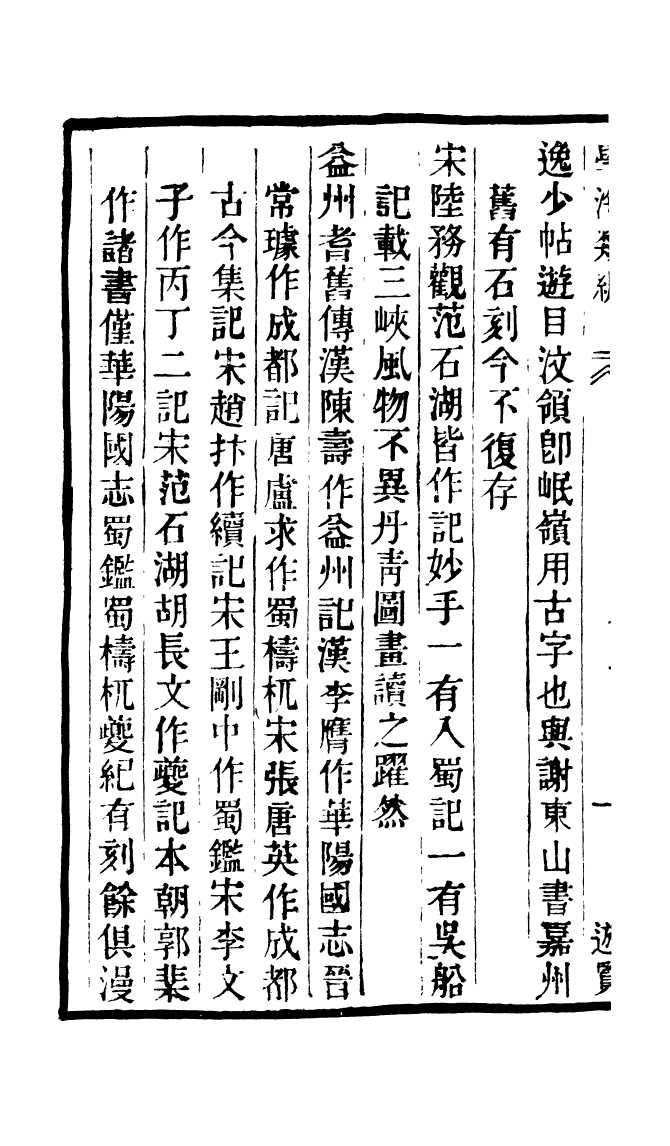 學海類編
一
遊覽
逸少帖遊目汶領卽岷嶺用古字也與謝東山書嘉州
舊有石刻今不復存
宋陸務觀范石湖皆作記妙手一有入蜀記一有吳船
記載三峽風物不異丹青圖畫讀之躍然
益州耆舊傳漢陳壽作益州記漢李膺作華陽國志晉
常璩作成都記唐盧求作蜀檮杌宋張唐英作成都
古今集記宋趙抃作續記宋王剛中作蜀鑑宋李文
子作丙丁二記宋范石湖胡長文作夔記本朝郭棐
作諸書僅華陽國志蜀鑑蜀檮杌夔紀有刻餘俱漫